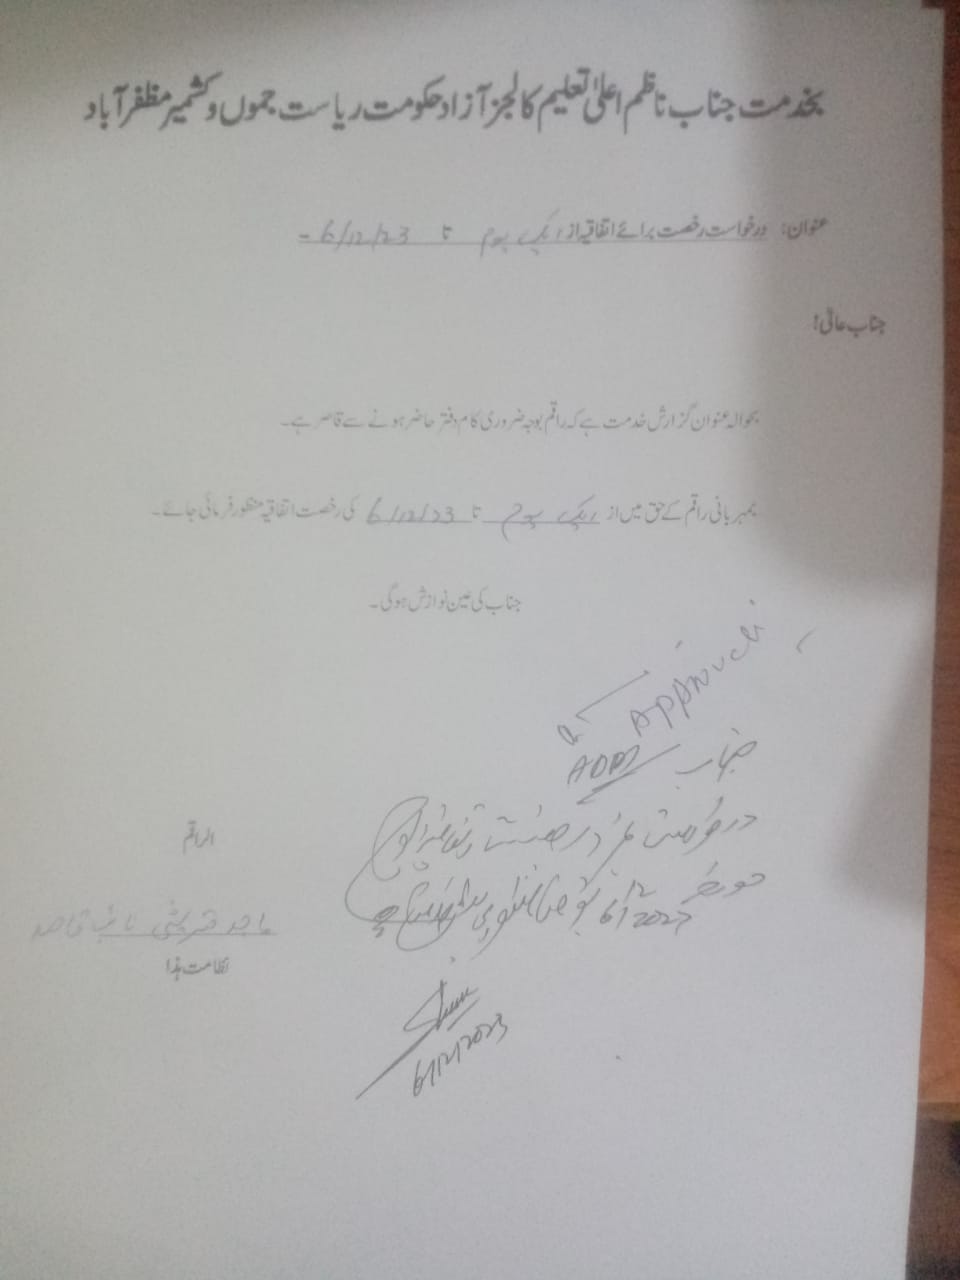 بخدمت جناب ناظم اعلیٰ تعلیم کالجز آزاد حکومت ریاست جموں و کشمیر مظفر آباد
عنوان: درخواست رخصت برائے اتفاقیہ از ایک یوم تا 6/12/23 -
جناب عالی!
بحوالہ عنوان گزارش خدمت ہے کہ راقم بوجہ ضروری کام دفتر حاضر ہونے سے قاصر ہے۔
بمہربانی راقم کے حق میں از ایک یوم تا 6/12/23 کی رخصت اتفاقیہ منظور فرمائی جائے۔
جناب کی عین نوازش ہوگی۔
Approved
جناب
درخواست رخصت اتفاقیہ
مورخہ 6/12/2023
6/12/2023
الراقم
ماجد قریشی نائب قاصد
نظامت ہذا